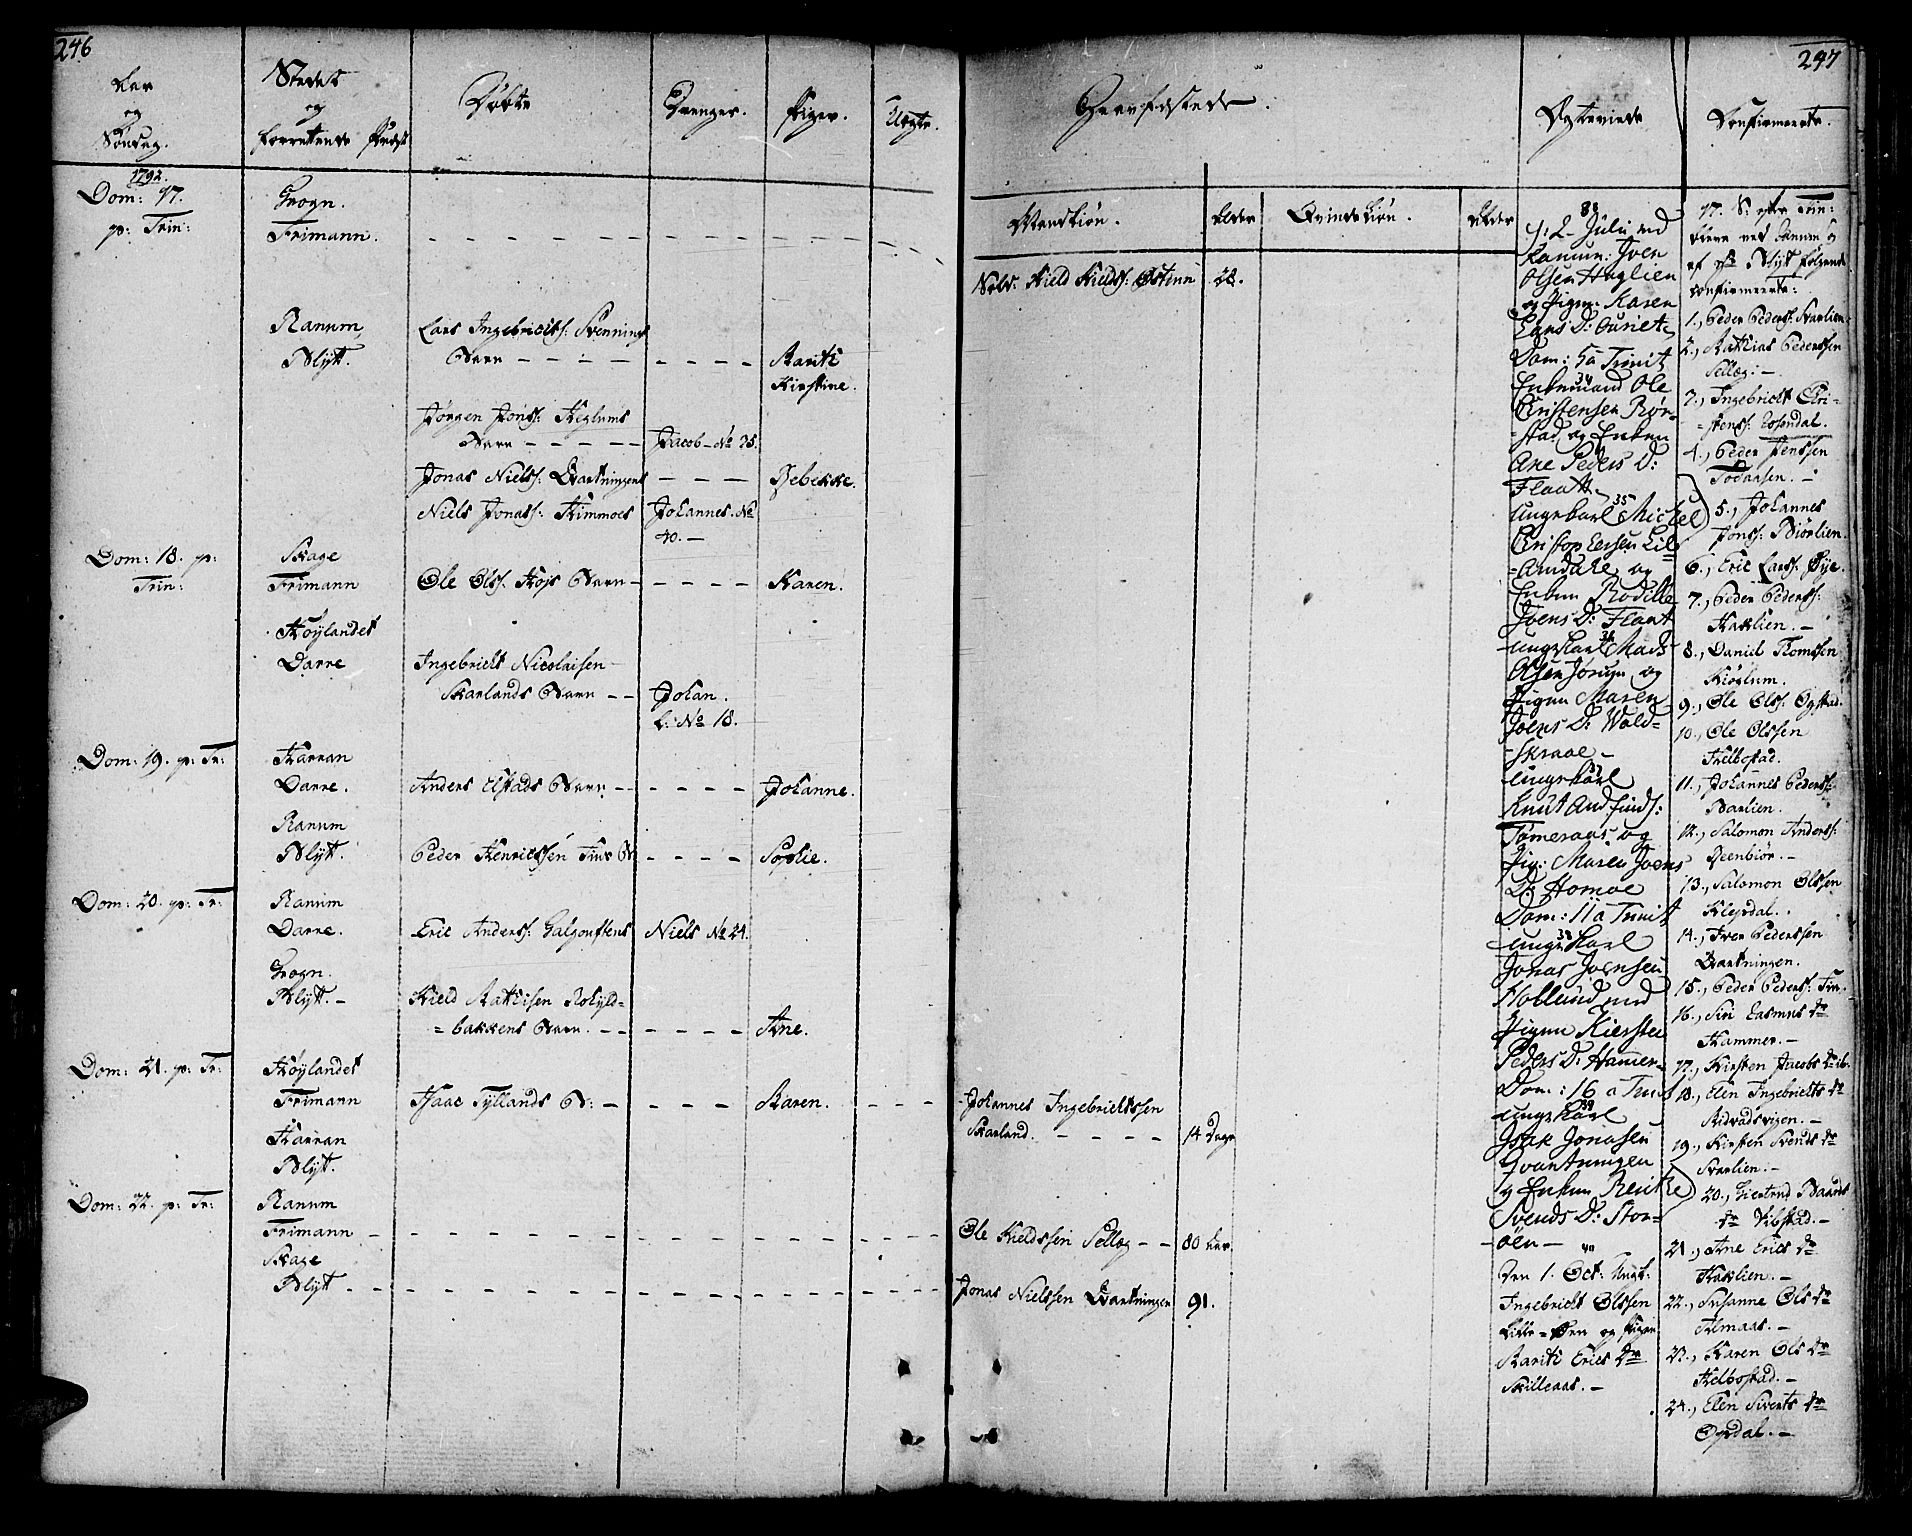 246
Aar
og
Søndag.
Stedet
og
forrettende Præst
Døbte
Drenger.
Piger.
Uægte.
1792.
Dom: 17.
p: Trin:
Grogn.
Frimann.
Ranum,
Blyt.
Lars Ingebrictss: Svennings
Barn
Mariti
Kirstine.
Jørgen Jonss: Heglums
Barn
Jacob No 35.
Jonas Nielss: Qvartningens
Rebekke.
Niels Jonass: Himmoes
Johannes. No
40.
Dom: 18. p:
Trin:
Skage
Frimann
Ole Olss: Hojs Barn
Karen.
Høylandet
Darre
Ingebricht Nicolaisen
Skarlands Barn
Johan.
L: No 18.
Dom: 19. p: Tr:
Harran
Darre.
Anders Elstads Barn
Johanne.
Ranum
Blyt.
Peder Henricssen Fins B.
Sophie.
Dom: 20. p: Tr:
Ranum
Darre.
Eric Anderss: Galgouftens
Niels No 24.
Grogn.
Blyt.
Kield Mathisen
bakkens Barn.
Ane.
Dom: 21. p: Tr:
Høylandet
Frimann
Isaac Tyllands B:
Maren.
Harran
Blyt.
Dom: 22. p: Tr:
Ranum
Frimann
Skage
Blyt
247
Gravfæstede.
Mandkiøn.
Alder
Qvindekiøn.
Alder
Kield Kieldss: Østnun
28.
Johannes Ingebrictssen
Skarland.
14 Dage
Ole Kieldssen Sellæg
80 Aar.
Jonas Nielssen Qvartningen
91.
Egteviede
d: 2 Julii ved
Ranum: Joen
Olsen Haglien
og Pigen Karen
Lars D:
Dom: 5 a Trinit
Enkemand Ole
Christensen Rør-
stad og Enken
Ane Peders D:
Flaatt
35
Ungekarl Michel
Lil-
Amdahl og
Enken Bodille
Joens D: Flaat
Ungekarl Mads
Olsen Jørum og
Pigen Maren
Joens D: Wold-
Skraae
37
Ungekarl
Knut Andfinds:
Tømeraas og
Pig: Maren Joens
D: Homoe
Dom: 11 a Trinit
38
Ungekarl
Jonas Joensen
Hollund med
Pigen Kiersten
Peders D: Hamer
Dom: 16 a Trinit
39
Ungekarl
Isak Jonasen
Qvantningen
og Enken Bentke
Svends D: Stor-
øen
40
Den 1. Oct: Ungk:
Ingebricht Olssen
Lille-Øen og Pigen
Mariti Erics Dr
Skilleaas.
Confirmeerte.
17. S: efter Trin:
bleve ved Ranum
af Hr Blyt følgende
confirmeerte:
1., Peder Pederss: Svarlien.
2., Mathias Pederssen
Sellæg:
3., Ingebricht Chri-
stenss: Rosendal.
4., Peder Jenssen
Fodansen.
5., Johannes
Jonss: Biørlien.
6., Eric Larss: Bye.
7., Peder Pederss:
Haklien.
8., Daniel Thomssen
Kiørlum.
9., Ole Olss: Øgstad.
10., Ole Olssen
Helbostad.
11., Johannes Pederss:
Barlien.
12., Salomon Anderss:
Reenbiør.
13., Salomon Olssen
Klepdal.
14., Iver Pederssen
Qvartningen.
15., Peder Pederss: Fin.
16., Siri Rasmus Dr
Hammer.
17., Kirsten Jacobs Dr ib.
18., Elen Ingebrictts Dr
19., Kirsten Svends Dr
Svarlien.
20., Giertrud Baards
Dr Vibstad.
21., Ane Erics Dr
Haklien.
22., Susanne Ols Dr
Almaas.
23., Karen Ols Dr
Helbostad.
24., Elen Siverts Dr
Opdal.